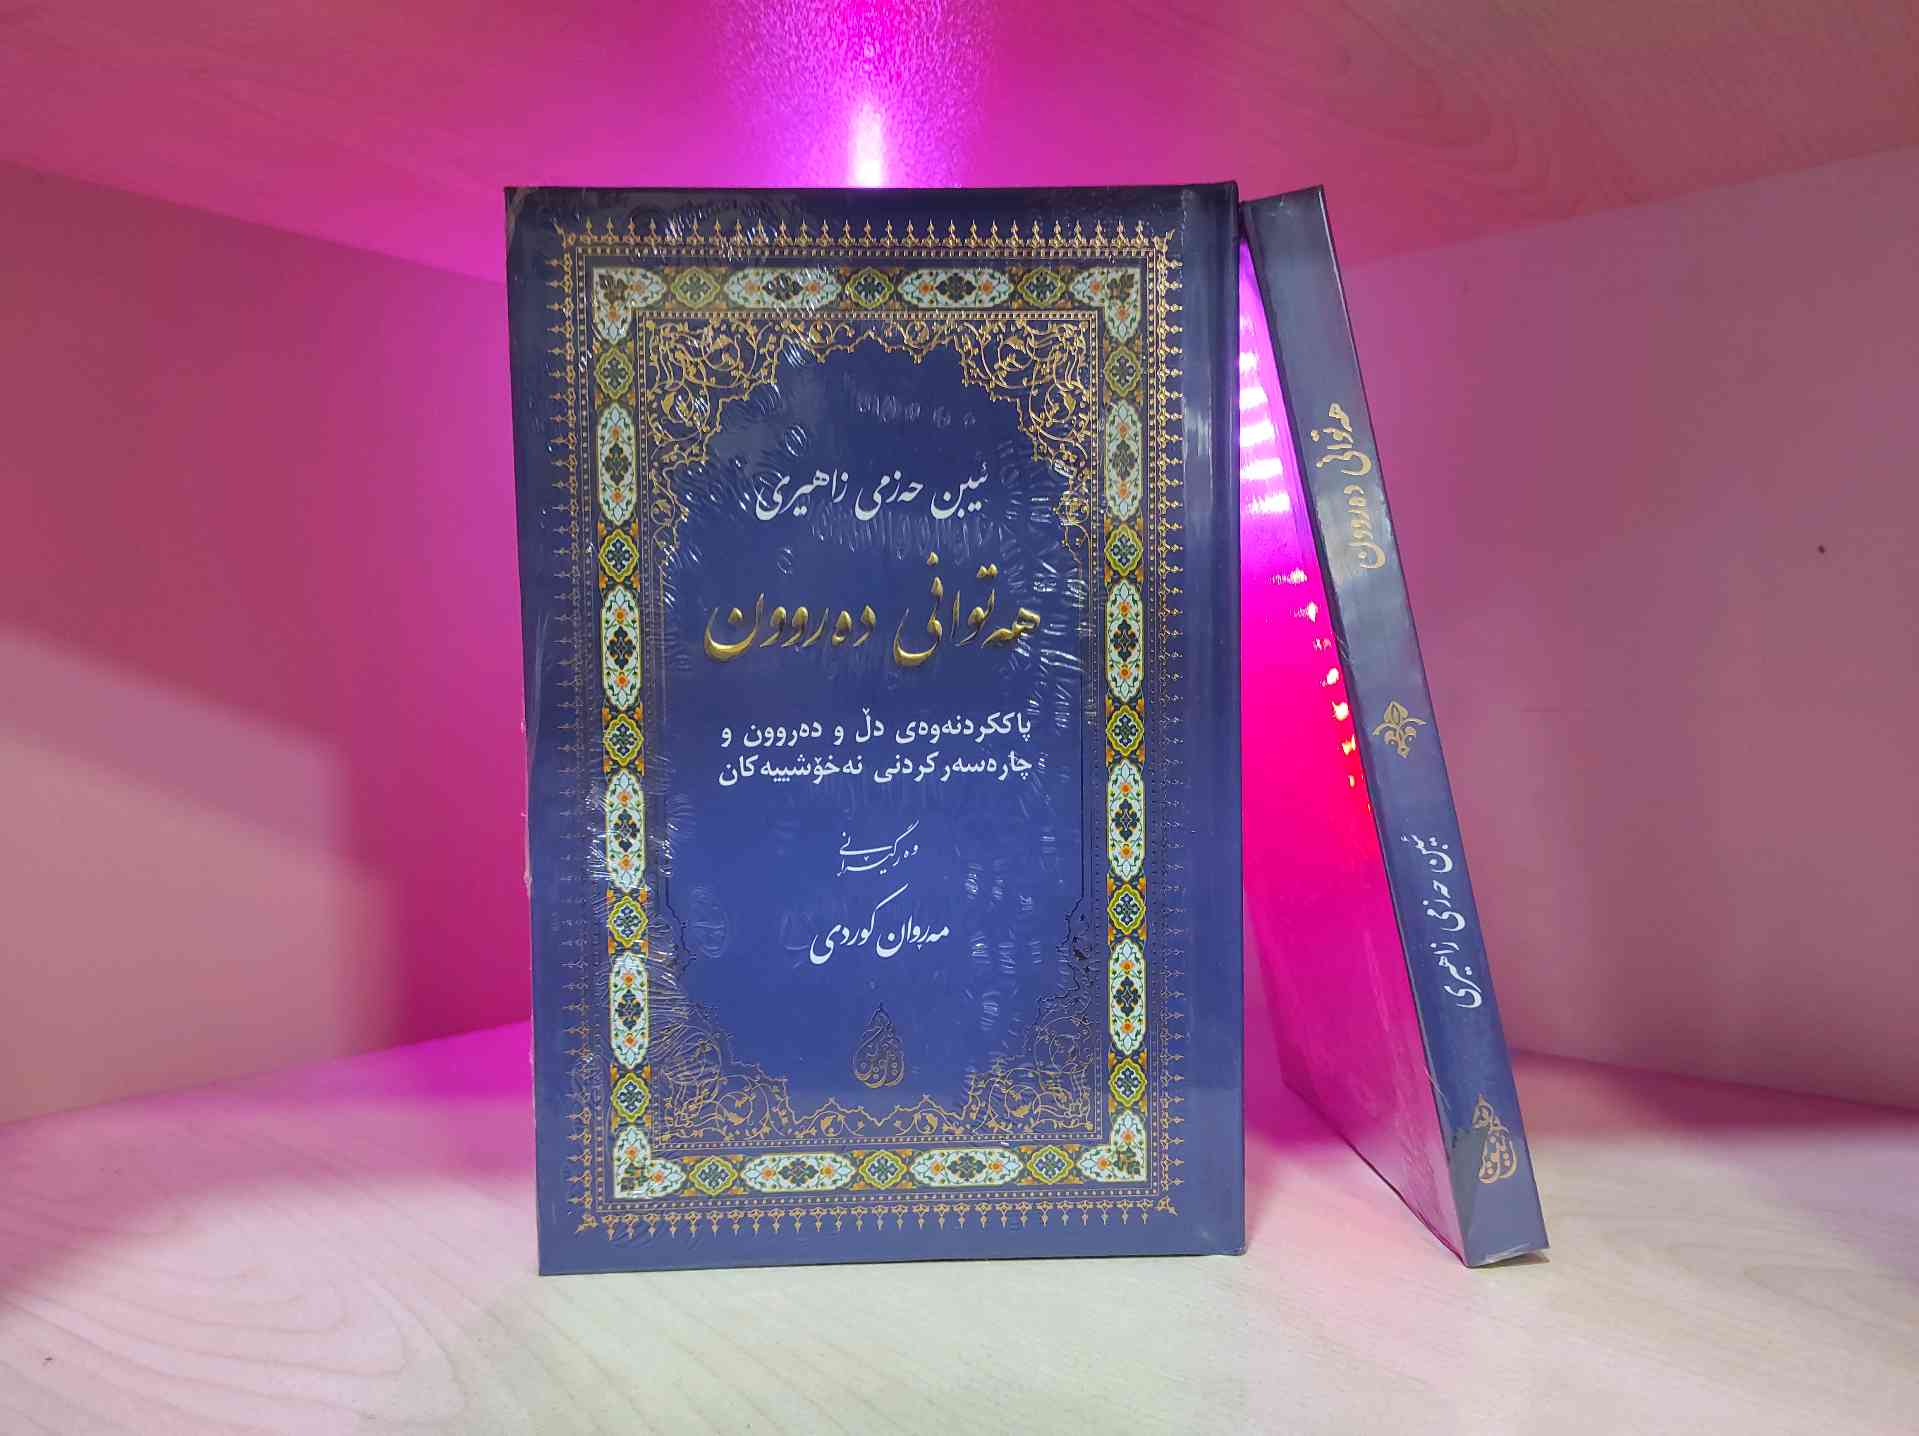 ئیبن حەزمی زاهیری
هەتوانی دەروون
پاککردنەوەی دڵ و دەروون و
چارەسەرکردنی نەخۆشییەکان
وەرگێڕانی
مەروان کوردی
هەتوانی دەروون
ئیبن حەزمی زاهیری